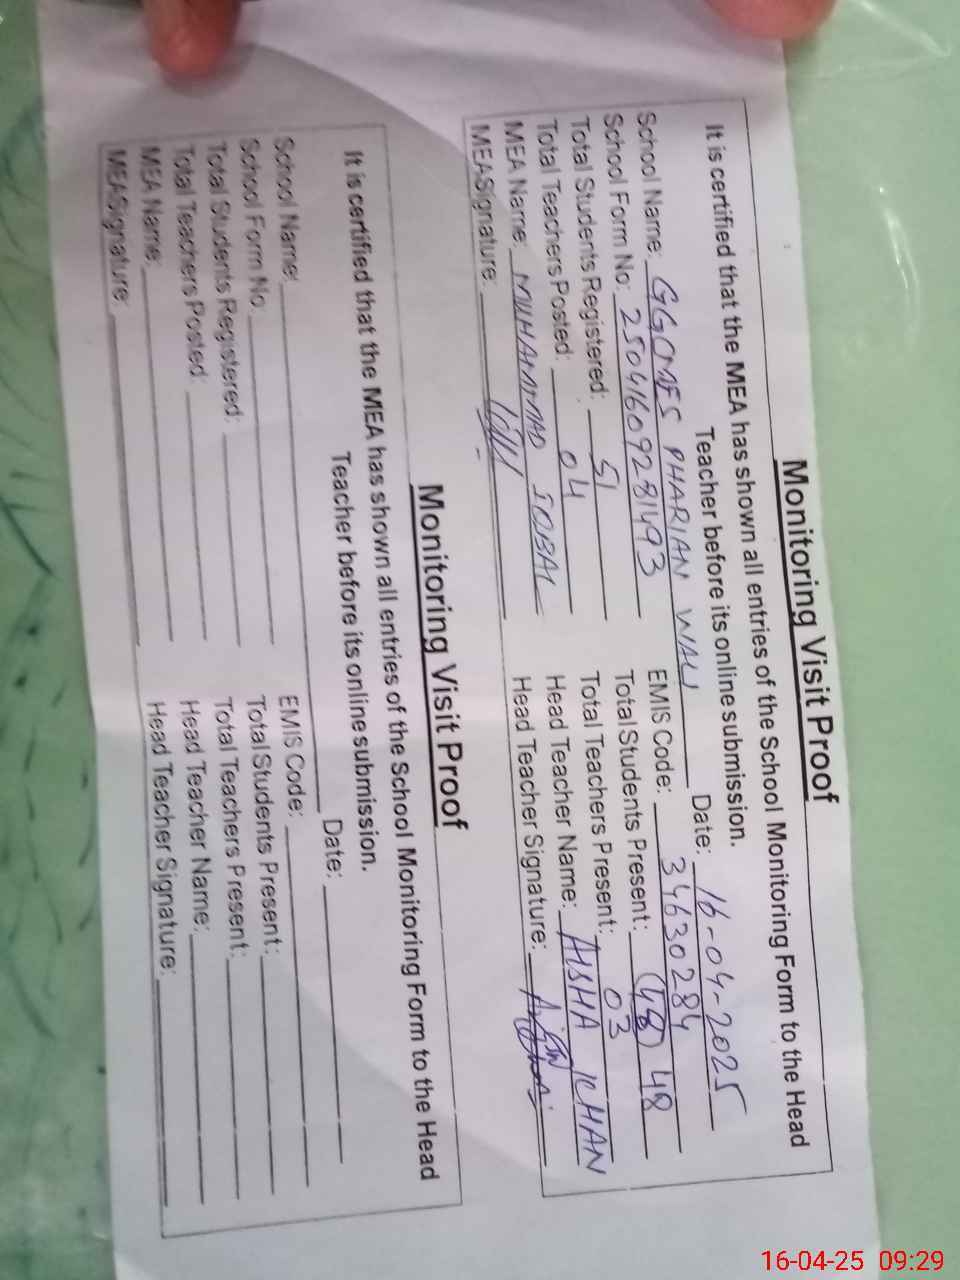 Monitoring Visit Proof
It is certified that the MEA has shown all entries of the School Monitoring Form to the Head
Teacher before its online submission.
School Name: GGCMES PHARIAN WALI Date: 16-04-2025
School Form No: 25041609281493 EMIS Code: 34630284
Total Students Registered: 51 Total Students Present: (48) 48
Total Teachers Posted: 04 Total Teachers Present: 03
MEA Name: MUHAMMAD IQBAL Head Teacher Name: AISHA KHAN
MEASignature: Head Teacher Signature:
Monitoring Visit Proof
It is certified that the MEA has shown all entries of the School Monitoring Form to the Head
Teacher before its online submission.
School Name: Date:
School Form No: EMIS Code:
Total Students Registered: Total Students Present:
Total Teachers Posted: Total Teachers Present:
MEA Name: Head Teacher Name:
MEASignature: Head Teacher Signature:
16-04-25 09:29